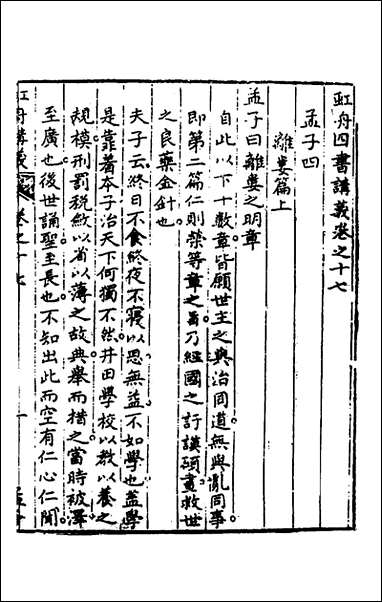 虹舟四書講義卷之十七
孟子四
離婁篇上
孟子曰離婁之明章
自此以下十數章皆願世主之與治同道無與亂同事
即第二篇仁則榮等章之旨乃經國之訏謨碩畫救世
之良藥金針也
夫子云終日不食終夜不寢以思無益不如學也盖學
是靠著本子治天下何獨不然井田學校以教以養之
規模刑罰稅斂以省以薄之故典舉而措之當時被澤
至廣也後世誦聖至長也不知出此而空有仁心仁聞
虹舟講義
卷之十七
一